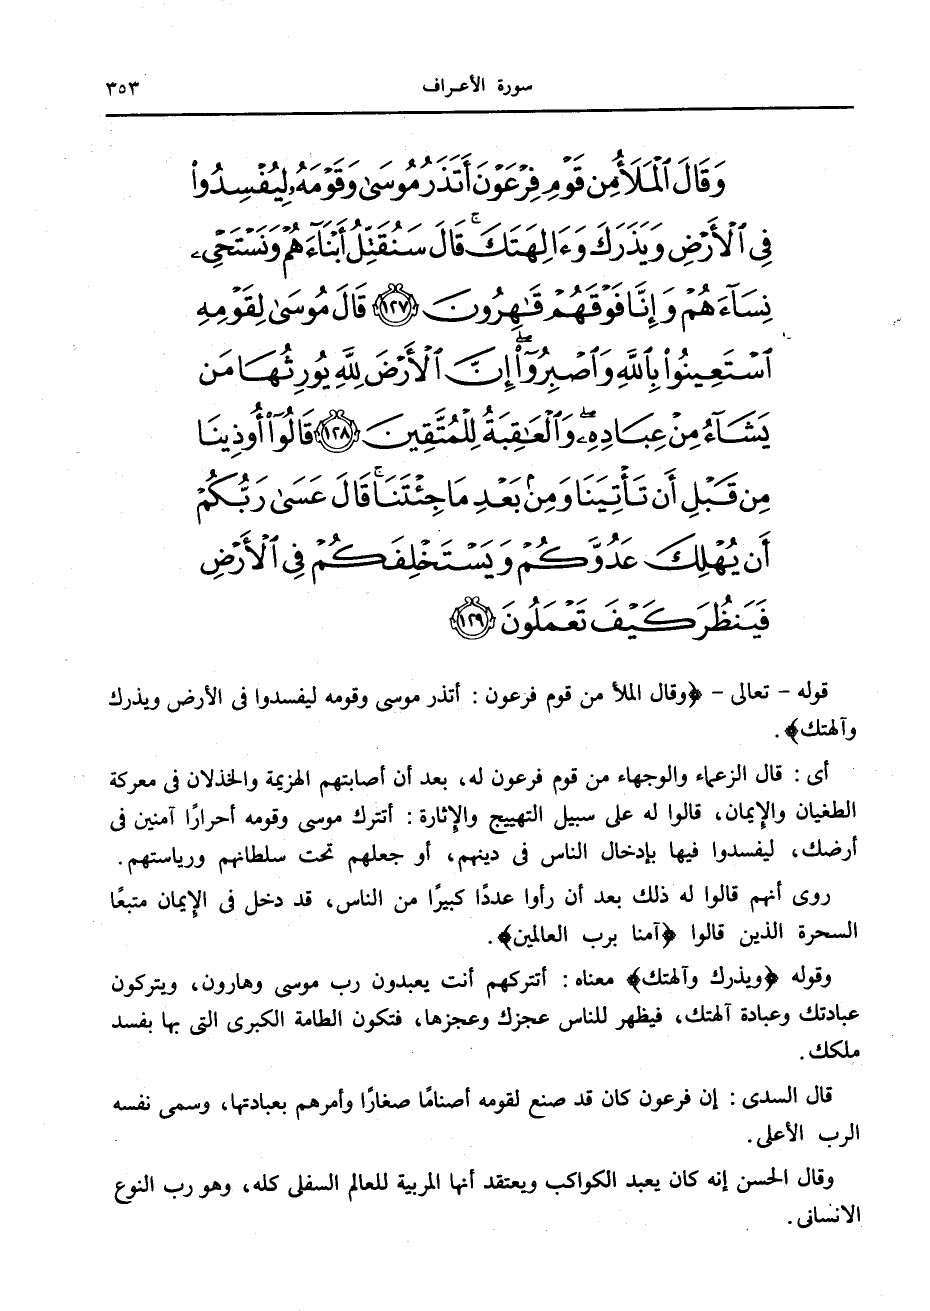 سورة الأعراف ٣٥٣
وَقَالَ ٱلْمَلَأُ مِن قَوْمِ فِرْعَوْنَ أَتَذَرُ مُوسَىٰ وَقَوْمَهُۥ لِيُفْسِدُوا۟
فِى ٱلْأَرْضِ وَيَذَرَكَ وَءَالِهَتَكَ ۚ قَالَ سَنُقَتِّلُ أَبْنَآءَهُمْ وَنَسْتَحْىِۦ
نِسَآءَهُمْ وَإِنَّا فَوْقَهُمْ قَٰهِرُونَ ١٢٧ قَالَ مُوسَىٰ لِقَوْمِهِ
ٱسْتَعِينُوا۟ بِٱللَّهِ وَٱصْبِرُوٓا۟ ۖ إِنَّ ٱلْأَرْضَ لِلَّهِ يُورِثُهَا مَن
يَشَآءُ مِنْ عِبَادِهِۦ ۖ وَٱلْعَٰقِبَةُ لِلْمُتَّقِينَ ١٢٨ قَالُوٓا۟ أُوذِينَا
مِن قَبْلِ أَن تَأْتِيَنَا وَمِنۢ بَعْدِ مَا جِئْتَنَا ۚ قَالَ عَسَىٰ رَبُّكُمْ
أَن يُهْلِكَ عَدُوَّكُمْ وَيَسْتَخْلِفَكُمْ فِى ٱلْأَرْضِ
فَيَنظُرَ كَيْفَ تَعْمَلُونَ ١٢٩
قوله - تعالى - ﴿وقال الملأ من قوم فرعون : أتذر موسى وقومه ليفسدوا فى الأرض ويذرك
وآلهتك﴾ .
أى : قال الزعماء والوجهاء من قوم فرعون له، بعد أن أصابتهم الهزيمة والخذلان فى معركة
الطغيان والإيمان، قالوا له على سبيل التهييج والإثارة : أتترك موسى وقومه أحرارًا آمنين فى
أرضك، ليفسدوا فيها بإدخال الناس فى دينهم، أو جعلهم تحت سلطانهم ورياستهم.
روى أنهم قالوا له ذلك بعد أن رأوا عددًا كبيرًا من الناس، قد دخل فى الإيمان متبعًا
السحرة الذين قالوا ﴿آمنا برب العالمين﴾.
وقوله ﴿ويذرك وآلهتك﴾ معناه : أتتركهم أنت يعبدون رب موسى وهارون، ويتركون
عبادتك وعبادة آلهتك، فيظهر للناس عجزك وعجزها، فتكون الطامة الكبرى التى بها يفسد
ملكك.
قال السدى : إن فرعون كان قد صنع لقومه أصنامًا صغارًا وأمرهم بعبادتها، وسمى نفسه
الرب الأعلى.
وقال الحسن إنه كان يعبد الكواكب ويعتقد أنها المربية للعالم السفلى كله، وهو رب النوع
الانسانى.